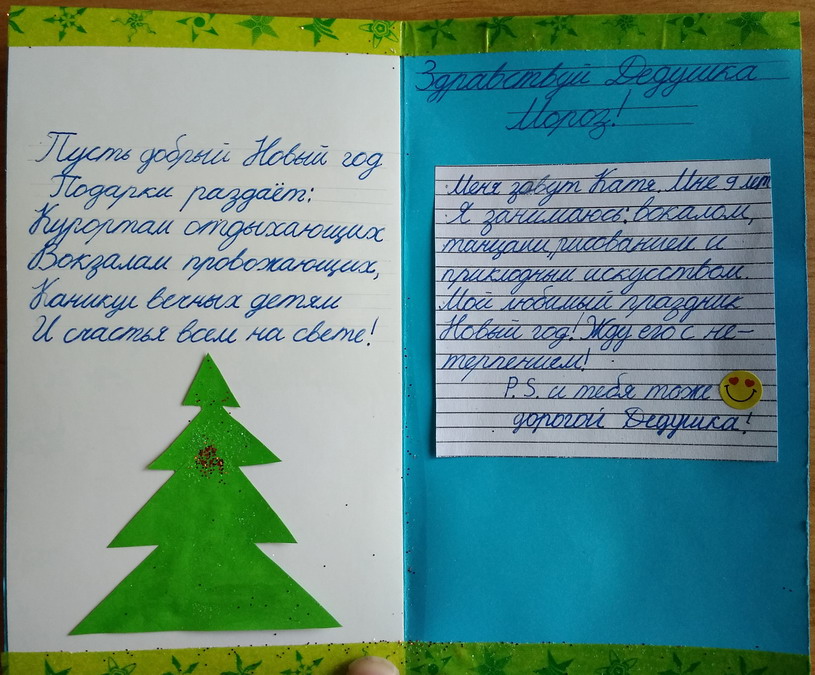 Пусть добрый Новый год
Подарки раздаёт:
Курортам отдыхающих
Вокзалам провожающих,
Каникул вечных детям
И счастья всем на свете!
Здравствуй Дедушка
Мороз!
Меня зовут Катя. Мне 9 лет
Я занимаюсь: вокалом,
танцами, рисованием и
прикладным искусством.
Мой любимый праздник
Новый год! Жду его с не-
терпением!
P.S. и тебя тоже
дорогой Дедушка!